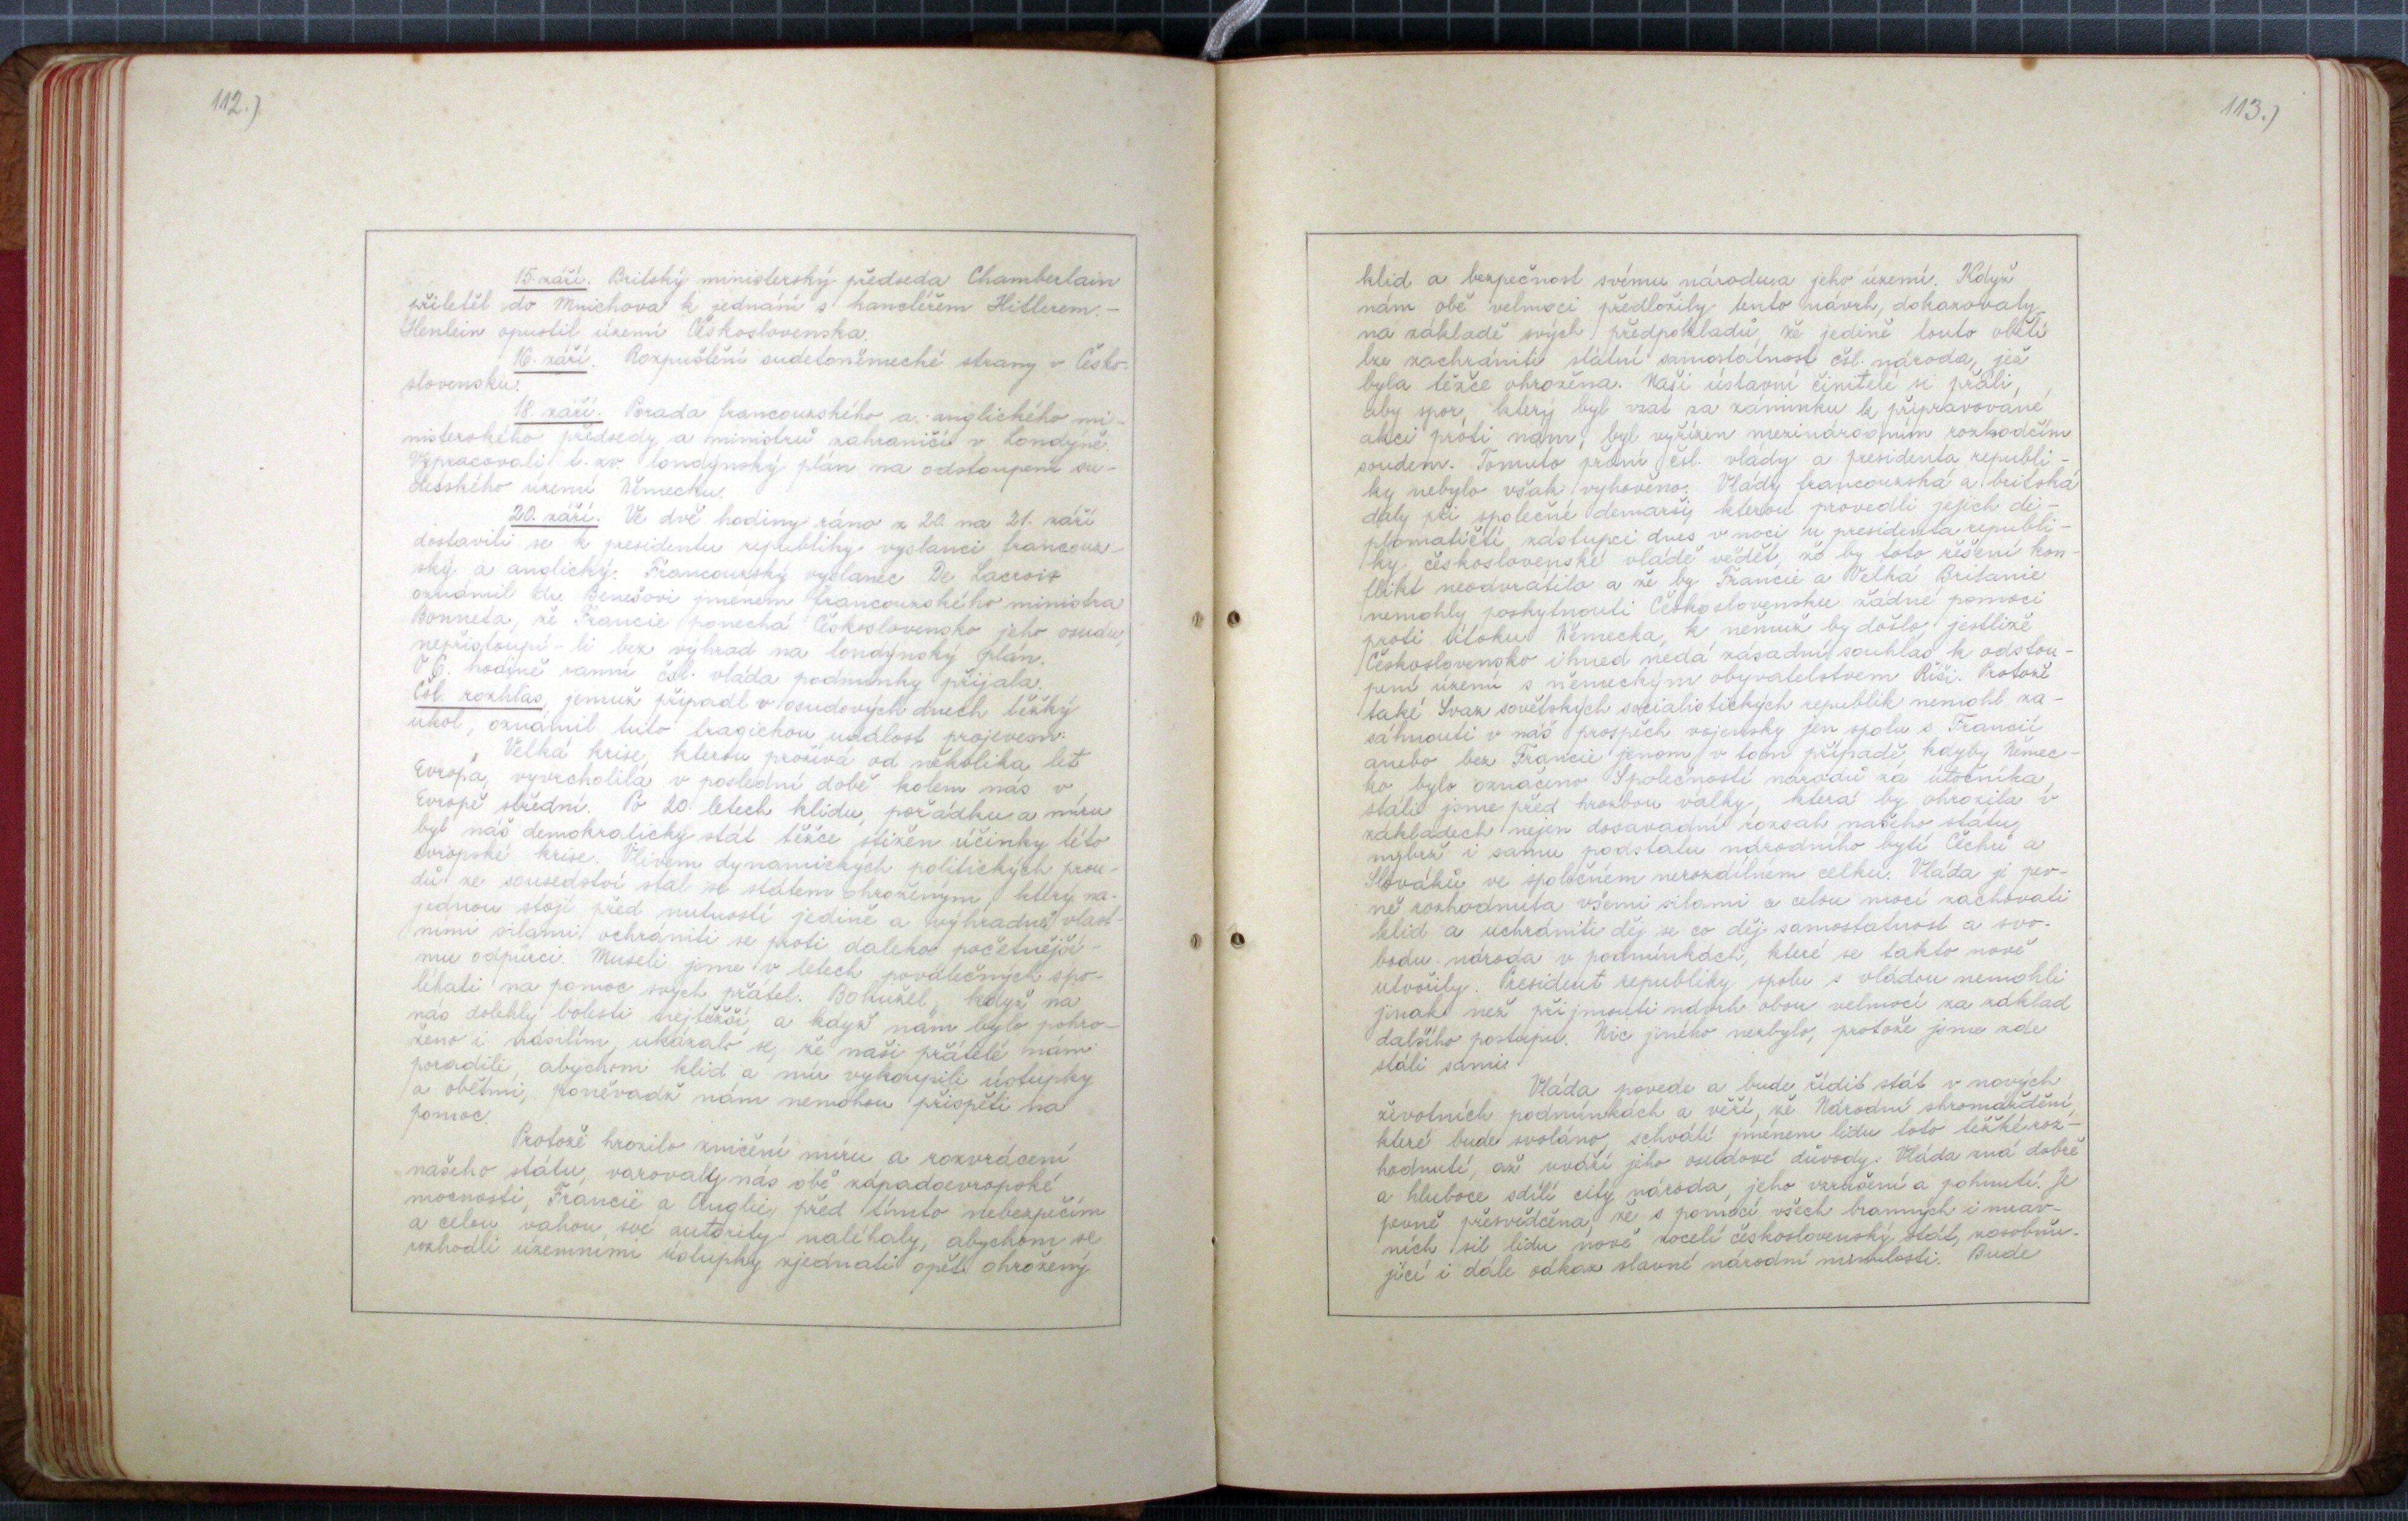 112.)
15. září. Britský ministerský předseda Chamberlain
přiletěl do Mnichova k jednání s kancléřem Hitlerem. -
Henlein opustil území Československa.
16. září. Rozpuštění sudetoněmecké strany v Česko-
slovensku.
18. září. Porada francouzského a anglického mi-
nisterského předsedy a ministrů zahraničí v Londýně.
Vypracovali t. zv. londýnský plán na odstoupení su-
detského území Německu.
20. září. Ve dvě hodiny ráno z 20 na 21. září
dostavili se k presidentu republiky vyslanci francouz-
ský a anglický. Francouzský vyslanec De Lacroix
oznámil dr. Benešovi jménem francouzského ministra
Bonneta, že Francie ponechá Československo jeho osudu,
nepřistoupí-li bez výhrad na londýnský plán.
V 6. hodině ranní čsl. vláda podmínky přijala.
Čsl. rozhlas, jemuž připadl v osudových dnech těžký
úkol, oznámil tuto tragickou událost projevem:
„Velká krise, kterou prožívá od několika let
Evropa, vyvrcholila v poslední době kolem nás v
Evropě střední. Po 20 letech klidu, pořádku a míru
byl náš demokratický stát těžce stižen účinky této
evropské krise. Vlivem dynamických politických prou-
dů ze sousedství stal se státem ohroženým, který na-
jednou stojí před nutností jedině a výhradně vlast-
ními silami ochrániti se proti daleko početnější-
mu odpůrci. Museli jsme v letech poválečných spo-
léhati na pomoc svých přátel. Bohužel, když na
nás dolehly bolesti nejtěžší, a když nám bylo pohro-
ženo i násilím, ukázalo se, že naši přátelé nám
poradili, abychom klid a mír vykoupili ústupky
a obětmi, poněvadž nám nemohou přispěti na
pomoc.
Protože hrozilo zničení míru a rozvrácení
našeho státu, varovaly nás obě západoevropské
mocnosti, Francie a Anglie, před tímto nebezpečím
a celou vahou své autority naléhaly, abychom se
rozhodli územními ústupky zjednati opět ohrožený
113.)
klid a bezpečnost svému národu a jeho území. Když
nám obě velmoci předložily tento návrh, dokazovaly
na základě svých předpokladů, že jedině touto obětí
lze zachrániti státní samostatnost čsl. národa, jež
byla těžce ohrožena. Naši ústavní činitelé si přáli,
aby spor, který byl vzat za záminku k připravované
akci proti nám, byl vyřízen mezinárodním rozhodčím
soudem. Tomuto přání čsl. vlády a presidenta republi-
ky nebylo však vyhověno. Vlády francouzská a britská
daly při společné demarši, kterou provedli jejich di-
plomatičtí zástupci dnes v noci u presidenta republi-
ky, československé vládě vědět, že by toto řešení kon-
flikt neodvrátilo a že by Francie a Velká Britanie
nemohly poskytnouti Československu žádné pomoci
proti útoku Německa, k němuž by došlo, jestliže
Československo ihned nedá zásadní souhlas k odstou-
pení území s německým obyvatelstvem Říši. Protože
také Svaz sovětských socialistických republik nemohl za-
sáhnouti v náš prospěch vojensky jen spolu s Francií
anebo bez Francie jenom v tom případě, kdyby Němec-
ko bylo označeno Společností národů za útočníka,
stáli jsme před hrozbou války, která by ohrozila v
základech nejen dosavadní rozsah našeho státu,
nýbrž i samu podstatu národního bytí Čechů a
Slováků ve společném nerozdílném celku. Vláda je pev-
ně rozhodnuta všemi silami a celou mocí zachovati
klid a uchrániti děj se co děj samostatnost a svo-
bodu národa v podmínkách, které se takto nově
utvořily. President republiky spolu s vládou nemohli
jinak než přijmouti návrh obou velmocí za základ
dalšího postupu. Nic jiného nezbylo, protože jsme zde
stáli sami.
Vláda povede a bude řídit stát v nových
životních podmínkách a věří, že Národní shromáždění,
které bude svoláno, schválí jménem lidu toto těžké roz-
hodnutí, až uváží jeho osudové důvody. Vláda zná dobře
a hluboce sdílí city národa, jeho vzrušení a pohnutí. Je
pevně přesvědčena, že s pomocí všech branných i mrav-
ních sil lidu nově zocelí československý stát, zosobňu-
jící i dále odkaz slavné národní minulosti. Bude